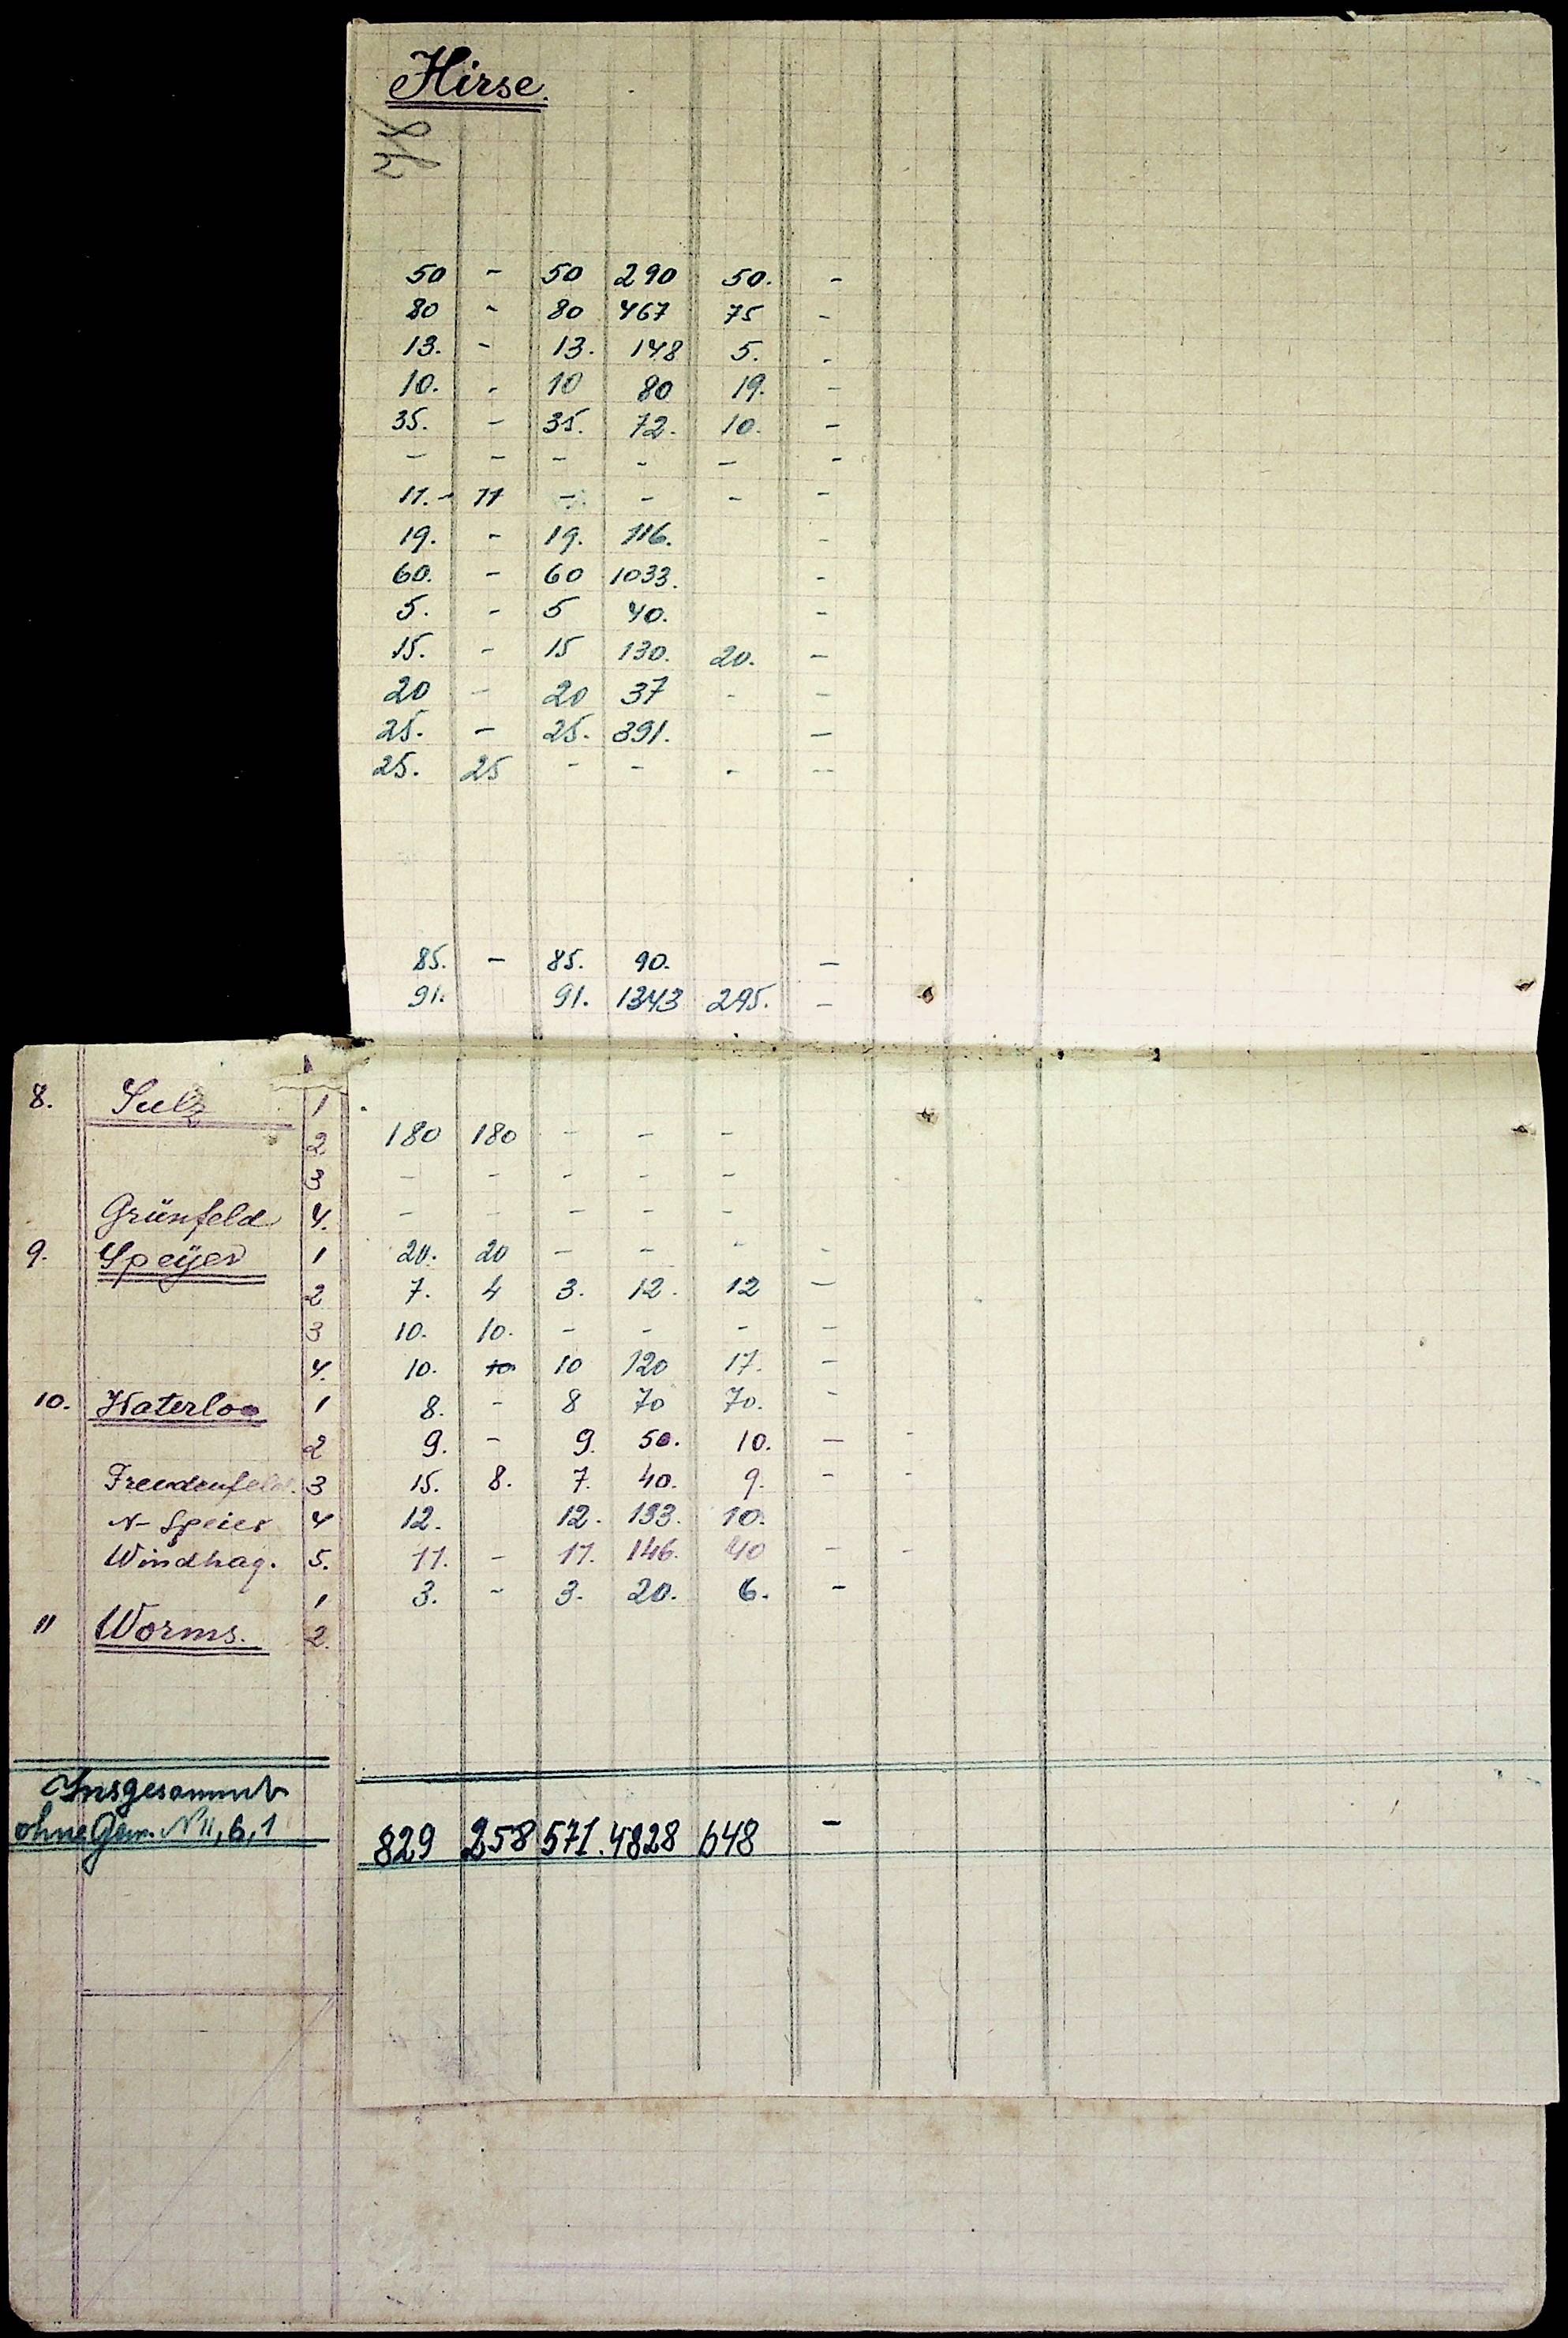 Hirse.
50 - 50 290 50. -
80 - 80 467 75 -
13. - 13. 148 5. -
10. - 10 80 19. -
35. - 35. 72. 10. -
- - - - - -
11. - 11 - - - -
19. - 19. 116. -
60. - 60 1033. -
5. - 5 40. -
15. - 15 130. 20. -
20 - 20 37 - -
25. - 25. 391. -
25. 25 - - - -
85. - 85. 90. -
91. 91. 1343 295. -
8. Sulz 1
2 180 180 - - -
3 - - - - -
Grünfeld 4. - - - - -
9. Speÿer 1 20. 20 - - - -
2 7. 4 3. 12. 12 -
3 10. 10. - - - -
4. 10. 10 10 120 17. -
10. Waterloo 1 8. - 8 70 70. -
2 9. - 9. 50. 10. - -
Freudenfeld. 3 15. 8. 7. 40. 9. - -
N-Speier 4 12. 12. 193. 10.
Windhag. 5. 11. - 11. 146. 40 - -
1 3. - 3. 20. 6. -
11 Worms. 2.
Insgesammt
ohne Gem. N 11, 6, 1 829 258 571. 4828 648 -